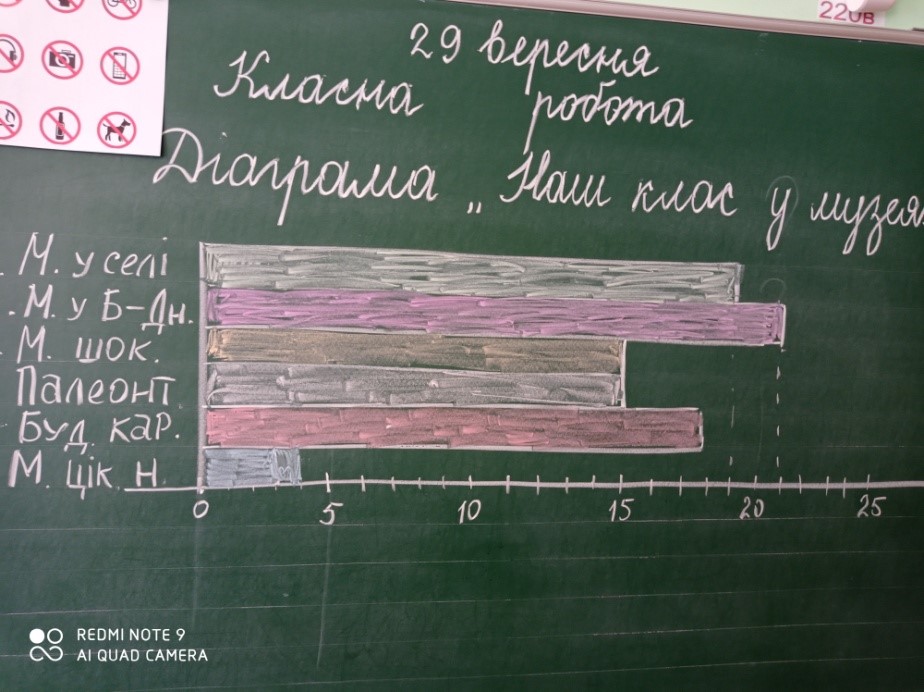 220В
29 вересня
Класна робота
Діаграма „Наш клас у музея
М. у селі
М. у Б-Дн.
М. шок.
Палеонт
Буд. кар.
М. цік. н.
0 5 10 15 20 25
REDMI NOTE 9
AI QUAD CAMERA